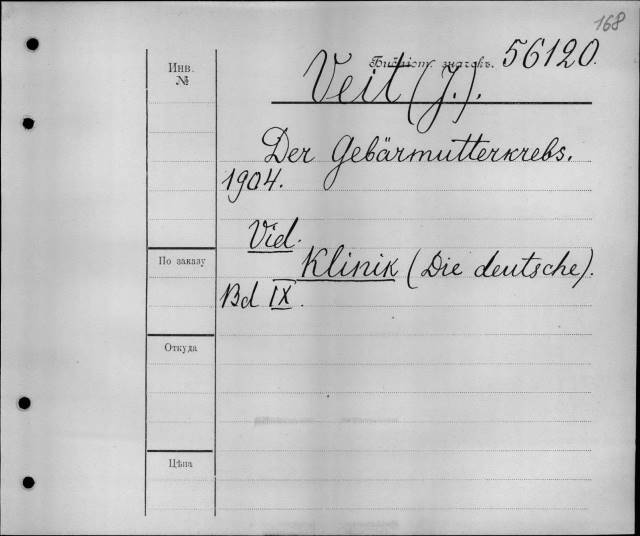 168
Библіот. значекъ. 56120.
Инв.
№
Veit (J.).
Der Gebärmutterkrebs.
1904.
Vid.
По заказу
Klinik (Die deutsche).
Bd IX.
Откуда
Цѣна